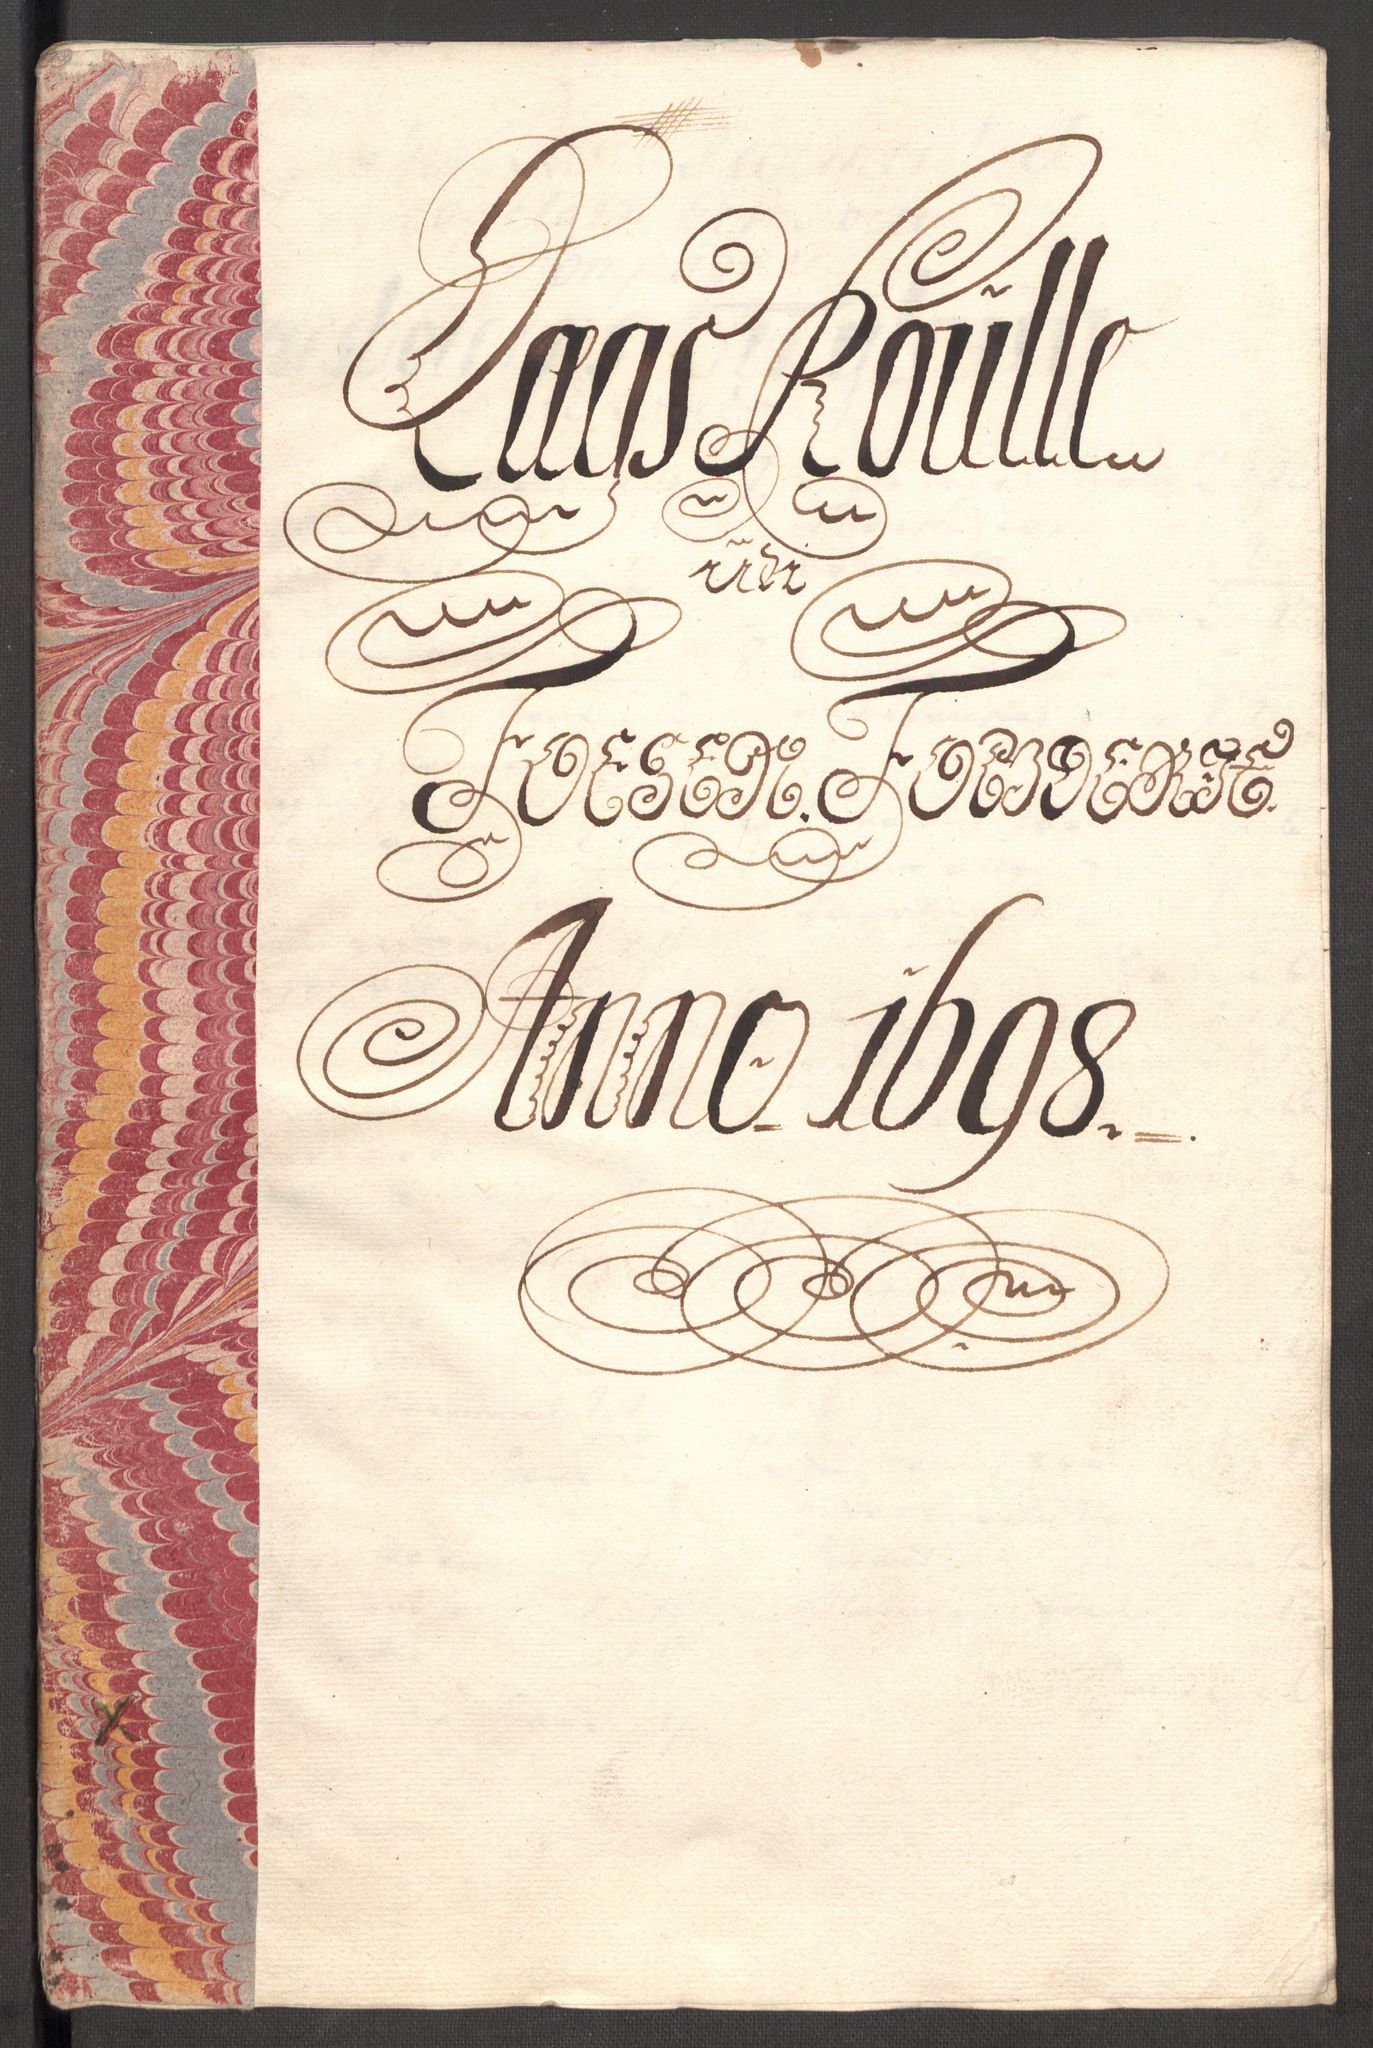 Laas Roulle
ud
Foesen. Fougderie.
Anno 1698.